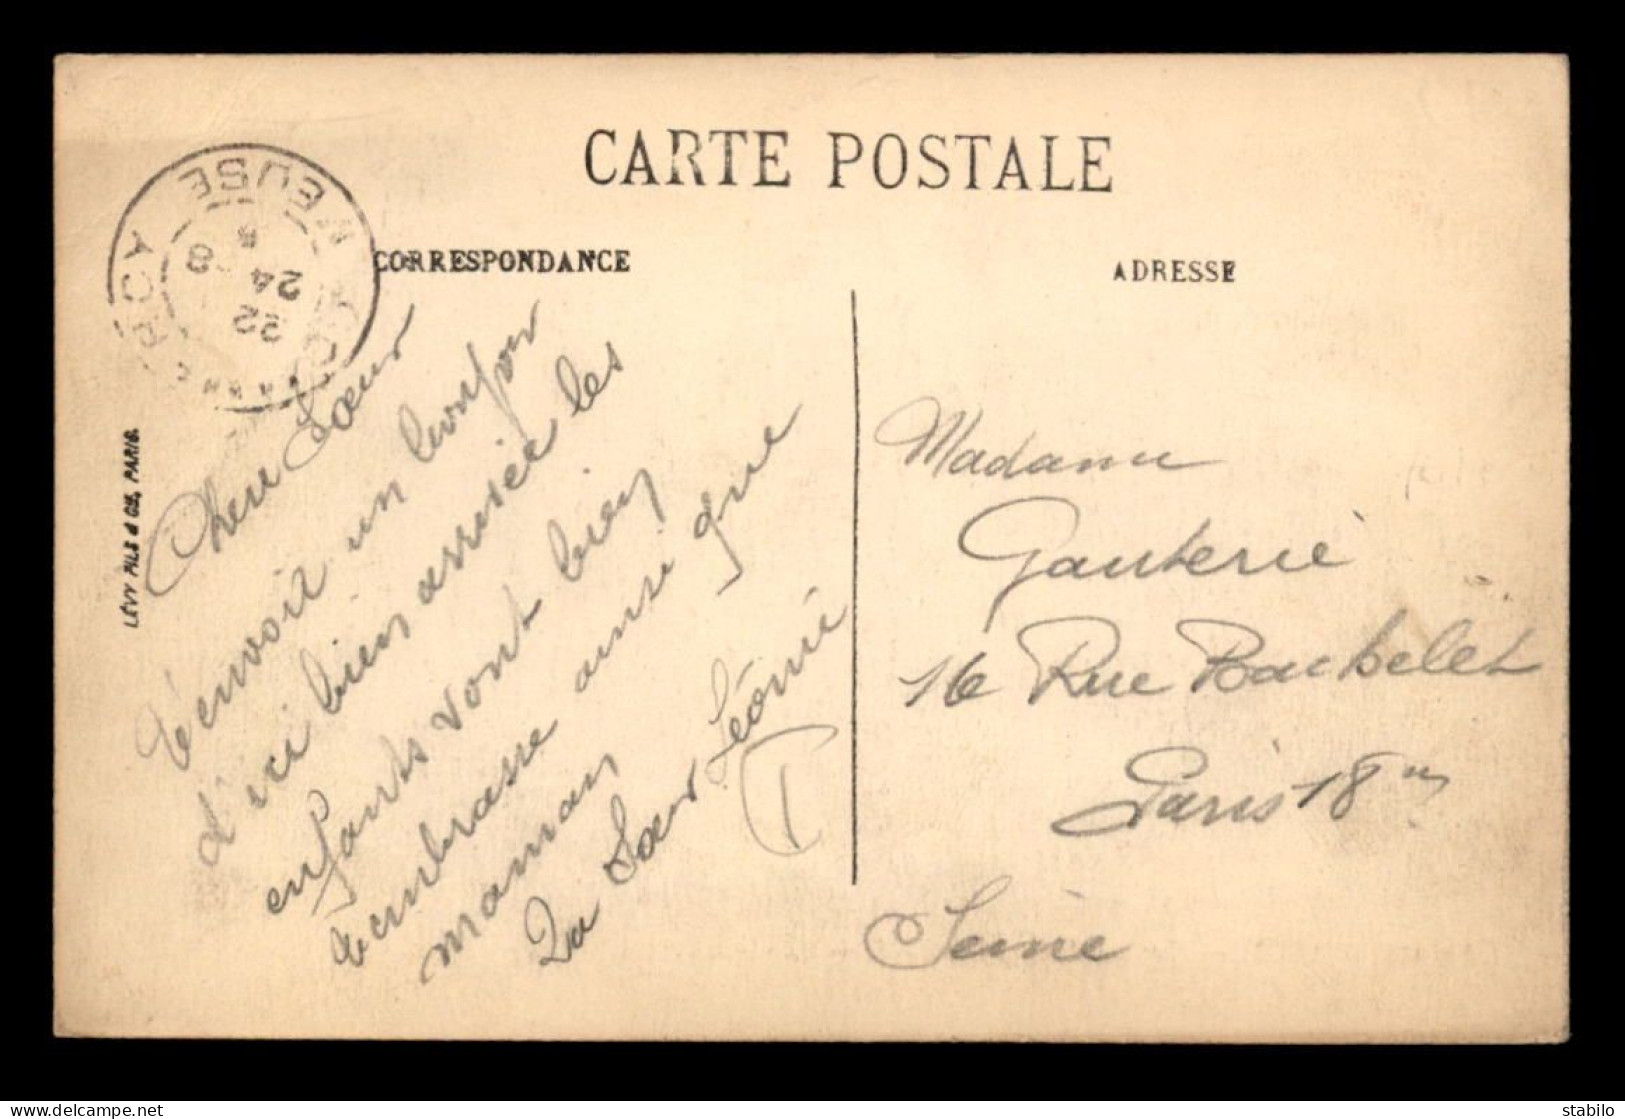 CARTE POSTALE
CORRESPONDANCE
ADRESSE
MEUSE
22
24
8
LÉVY FILS & Cie, PARIS.
Chere Sœur
t'envoit un bonjour
d'ici bien arrivée les
enfants vont bien
t'embrasse ainsi que
maman
Ta Sœur Léonie
Madame
Gauterie
16 Rue Bachelet
Paris 18me
Seine
stabilo